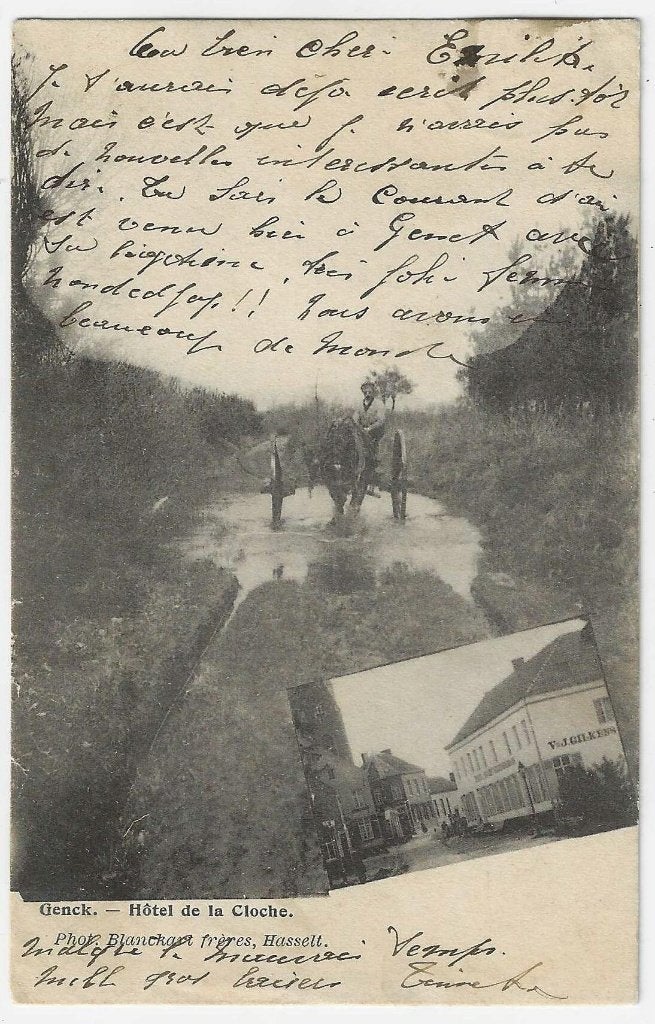 bien cher Emilie.
Je t'aurais deja ecrit plus tôt
Mais c'est que je n'avais pas
de nouvelles interessantes à te
dire. Tu sais le courant d'ai
est venu hier à Genck avec
sa très jolie femme
!! Nous avons eu
beaucoup de Monde
V<sup>ve</sup> J. GILKENS
Genck. — Hôtel de la Cloche.
Phot. Blanckart frères, Hasselt.
Malgré le mauvais temps.
Mille gros baisers